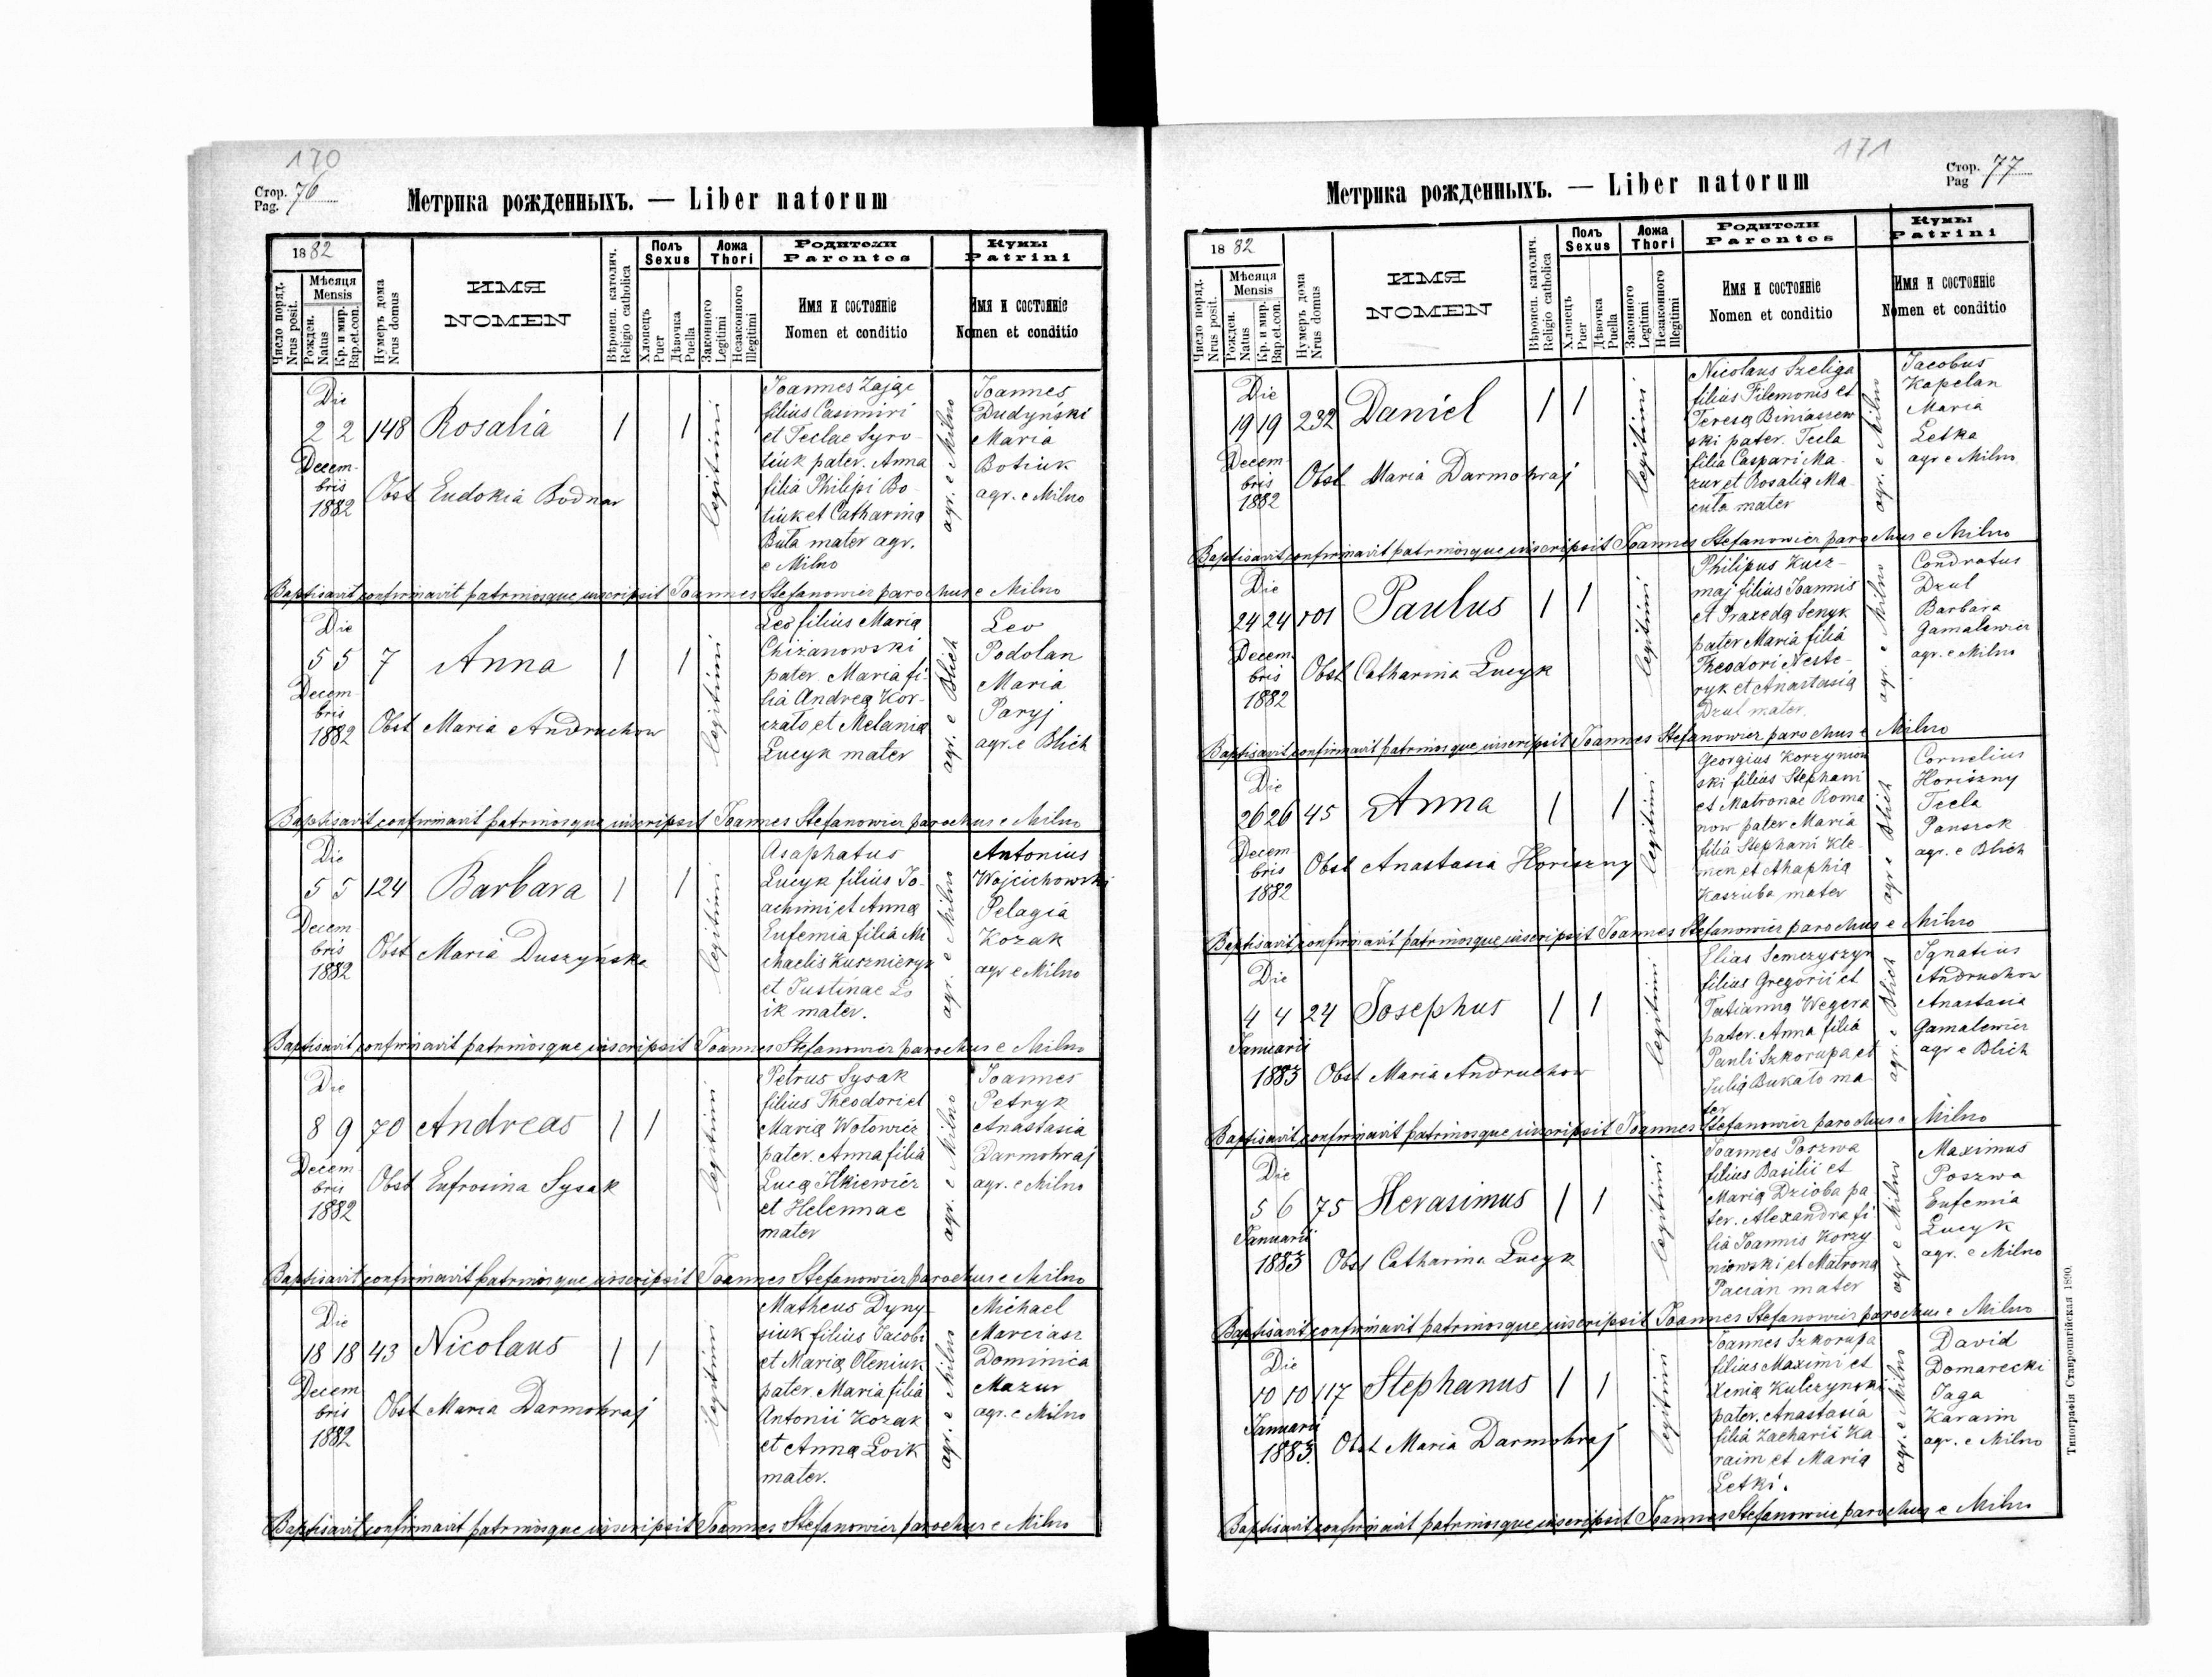 170
Стор. 76
Pag.
Метрика рожденныхъ. — Liber natorum
1882
Число поряд.
Nrus posit.
Мѣсяця
Mensis
Рожден.
Natus
Кр. и мир.
Bap.et.con.
Нумеръ дома
Nrus domus
ИМЯ
NOMEN
Вѣроисп. католич.
Religio catholica
Полъ
Sexus
Хлопецъ
Puer
Дѣвочка
Puella
Ложа
Thori
Законного
Legitimi
Незаконного
Illegitimi
Родители
Parentes
Имя и состоянiе
Nomen et conditio
Кумы
Patrini
Имя и состоянiе
Nomen et conditio
Die
2 2 148 Rosalia 1 1
Decem-
bris
1882
Obst Eudokia Bodnar
legitimi
Joannes Zając
filius Casimiri
et Teclae Syro-
tiuk pater. Anna
filia Philipi Bo-
tiuk et Catharina
Buta mater agr.
e Milno
agr. e Milno
Joannes
Dudyński
Maria
Botiuk
agr. e Milno
Baptisavit confirmavit patrinosque inscripsit Joannes Stefanowicz parochus e Milno
Die
5 5 7 Anna 1 1
Decem-
bris
1882
Obst Maria Andruchow
legitimi
Leo filius Maria
Chizanowski
pater. Maria fi-
lia Andrea Kor-
czato et Melania
Lucyk mater
agr. e Blich
Leo
Podolan
Maria
Paryj
agr. e Blich
Baptisavit confirmavit patrinosque inscripsit Joannes Stefanowicz parochus e Milno
Die
5 5 124 Barbara 1 1
Decem-
bris
1882
Obst Maria Duszyńska
legitimi
Asaphatus
Lucyk filius Jo-
achimi et Anna
Eufemia filia Mi
chaelis Kusznieryk
et Justinae Lo
ik mater.
agr. e Milno
Antonius
Wojcichowski
Pelagia
Kozak
agr e Milno
Baptisavit confirmavit patrinosque inscripsit Joannes Stefanowicz parochus e Milno
Die
8 9 70 Andreas 1 1
Decem
bris
1882
Obst Eufrosina Sysak
legitimi
Petrus Sysak
filius Theodori et
Maria Wotowicz
pater. Anna filia
Luca Ilkiewicz
et Helennae
mater
agr. e Milno
Joannes
Petryk
Anastasia
Darmohraj
agr. e Milno
Baptisavit confirmavit patrinosque inscripsit Joannes Stefanowicz parochus e Milno
Die
18 18 43 Nicolaus 1 1
Decem
bris
1882
Obst Maria Darmohraj
legitimi
Matheus Dyny-
siuk filius Jacobi
et Maria Oleniuk
pater. Maria filia
Antonii Kozak
et Anna Loik
mater.
agr. e Milno
Michael
Marciasz
Dominica
Mazur
agr. e Milno
Baptisavit confirmavit patrinosque inscripsit Joannes Stefanowicz parochus e Milno
171
Стор. 77
Pag
Метрика рожденныхъ. — Liber natorum
1882
Число поряд.
Nrus posit.
Мѣсяця
Mensis
Рожден.
Natus
Кр. и мир.
Bap.et.con.
Нумеръ дома
Nrus domus
ИМЯ
NOMEN
Вѣроисп. католич.
Religio catholica
Полъ
Sexus
Хлопецъ
Puer
Дѣвочка
Puella
Ложа
Thori
Законного
Legitimi
Незаконного
Illegitimi
Родители
Parentes
Имя и состоянiе
Nomen et conditio
Кумы
Patrini
Имя и состоянiе
Nomen et conditio
Die
19 19 232 Daniel 1 1
Decem
bris
1882
Obst Maria Darmohraj
legitimi
Nicolaus Szeliga
filius Filemonis et
Teresa Biniaszew
ski pater. Tecla
filia Caspari Ma-
zur et Rosalia Ma
cuta mater
agr. e Milno
Jacobus
Kapelan
Maria
Letka
agr e Milno
Baptisavit confirmavit patrinosque inscripsit Joannes Stefanowicz parochus e Milno
Die
24 24 101 Paulus 1 1
Decem.
bris
1882
Obst Catharina Lucyk
legitimi
Philipus Kucz-
maj filius Joannis
et Praxeda Senyk
pater Maria filia
Theodori Neste-
ryk et Anastasia
Dzul mater.
agr. e Milno
Condratus
Dzul
Barbara
Gamalewicz
agr. e Milno
Baptisavit confirmavit patrinosque inscripsit Joannes Stefanowicz parochus e Milno
Die
26 26 45 Anna 1 1
Decem
bris
1882
Obst Anastasia Horiszny
legitimi
Georgius Korzyniow
ski filius Stephani
et Matronae Roma
now pater Maria
filia Stephani Kle-
men et Ahaphia
Kasziuba mater
agr e Blich
Cornelius
Horiszny
Tecla
Panszok
agr. e Blich
Baptisavit confirmavit patrinosque inscripsit Joannes Stefanowicz parochus e Milno
Die
4 4 24 Josephus 1 1
Januarii
1883
Obst Maria Andruchow
legitimi
Elias Semczyszyn
filius Gregorii et
Tatianna Wegera
pater. Anna filia
Pauli Szkorupa et
Julia Bukato ma
ter
agr. e Blich
Ignatius
Andruchow
Anastasia
Gamalewicz
agr e Blich
Baptisavit confirmavit patrinosque inscripsit Joannes Stefanowicz parochus e Milno
Die
5 6 75 Herasimus 1 1
Januarii
1883
Obst Catharina Lucyk
legitimi
Joannes Poszwa
filius Basilii et
Maria Dzioba pa-
ter. Alexandra fi-
lia Joannis Korzy
niowski et Matrona
Pacian mater
agr e Milno
Maximus
Poszwa
Eufemia
Lucyk
agr. e Milno
Baptisavit confirmavit patrinosque inscripsit Joannes Stefanowicz parochus e Milno
Die
10 10 117 Stephanus 1 1
Januarii
1883.
Obst Maria Darmohraj
legitimi
Joannes Szkorupa
filius Maximi et
Xenia Kulczynski
pater. Anastasia
filia Zacharii Ka
raim et Maria
Letki.
agr. e Milno
David
Domarecki
Jaga
Karaim
agr. e Milno
Baptisavit confirmavit patrinosque inscripsit Joannes Stefanowicz parochus e Milno
Типографiя Ставропигiйская 1890.